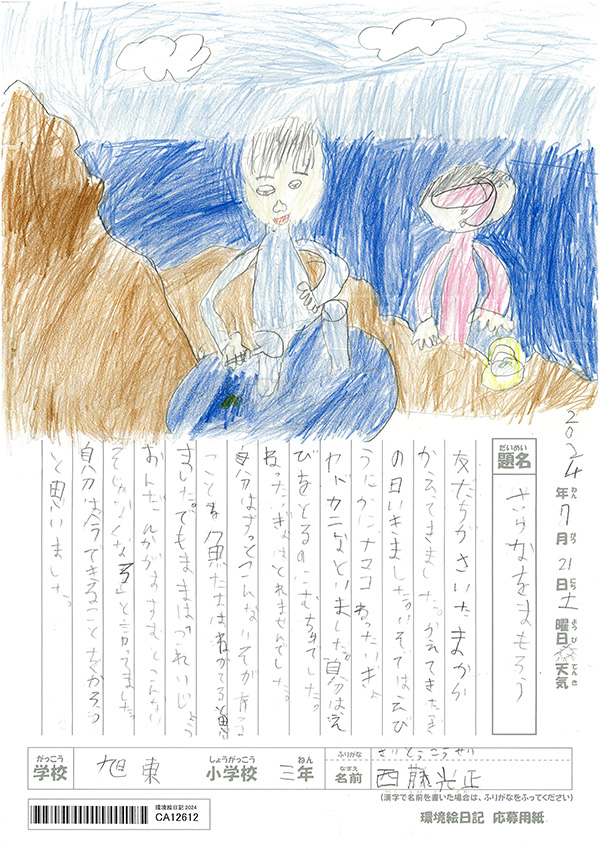 2024年7月21日土曜日天気
ねん がつ にち ようび てんき
だいめい
題名
さかなをまもろう
友だちがさいたまから
かえてきました。かえてきたつぎ
の日いきました。いそではえび
うにかにナマコねったいぎょ
ヤドカニなどいました。自分はえ
びをとるのにむちゅうでした。
ねったいぎょはとれませんでした。
自分はずっとこんないそが
ことを魚たちはねがてると思
ました。でもままは「これいじょう
おんだんかがすすむとこんない
そがなくなる」と言ってました。
自分は今できることをやろう
と思いました。
がっこう
学校
旭東
しょうがっこう
小学校
三年
ねん
ふりがな
さいとうこうせい
なまえ
名前
西藤光正
(漢字で名前を書いた場合は、ふりがなをふってください)
環境絵日記2024
CA12612
環境絵日記 応募用紙